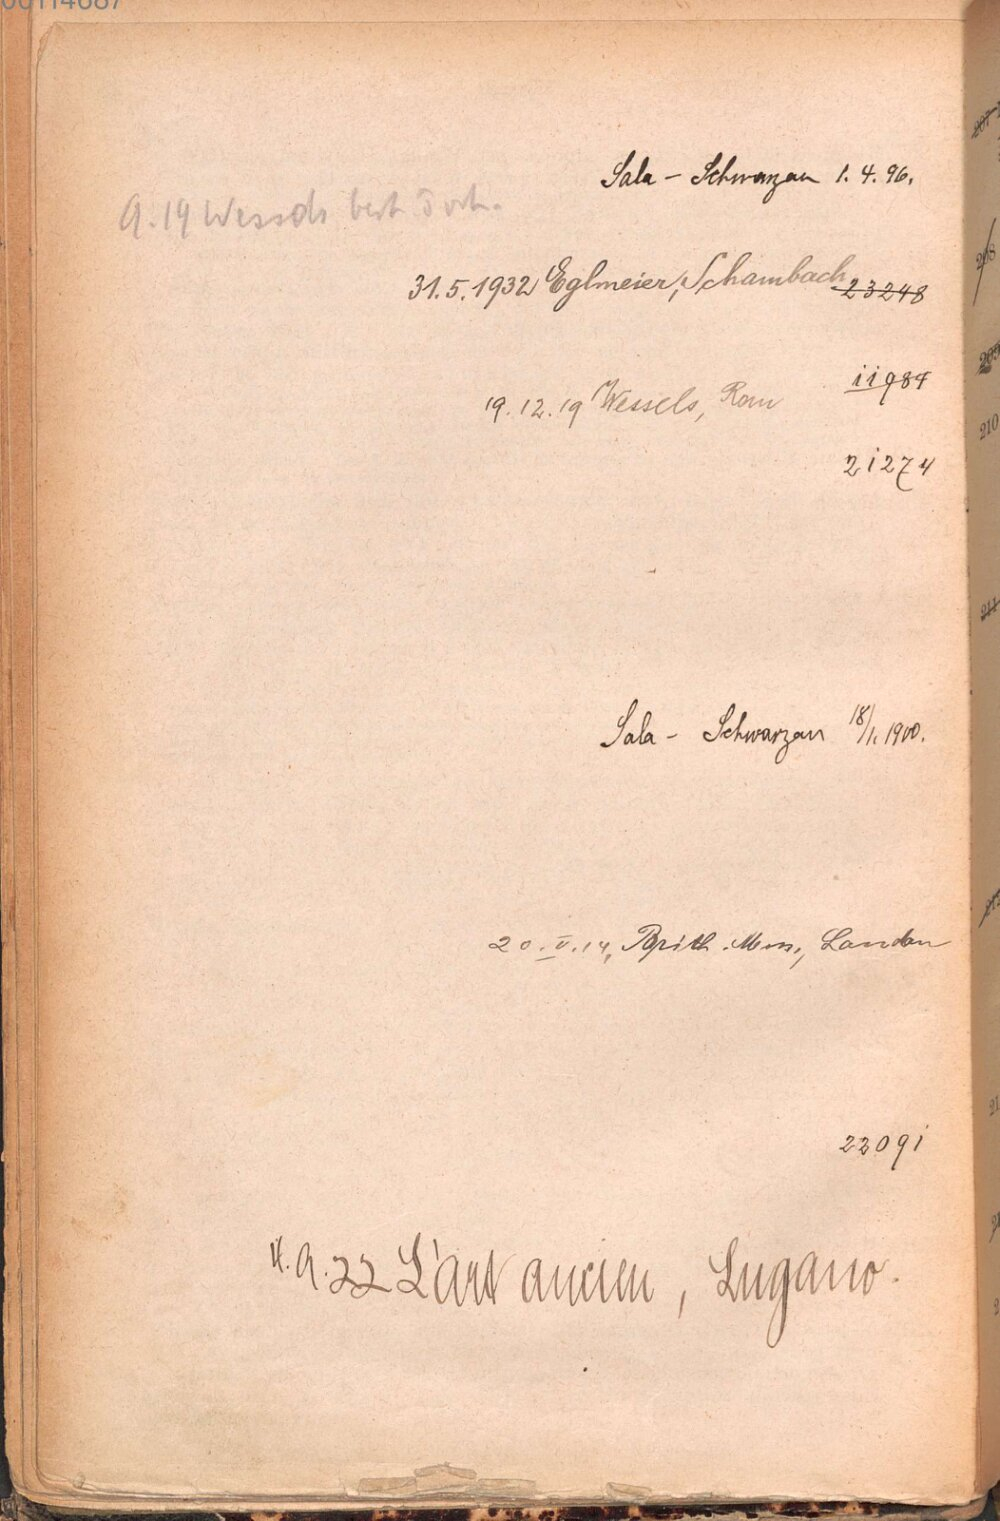 00114687
Sala – Schwarzau 1. 4. 96.
9.19 Wessels
31.5.1932 Eglmeier, Schambach 23248
11984
19.12.19 Wessels, Rom
21274
Sala – Schwarzau 18/1. 1900.
20.V.14, Brith. Mus., London
22091
4.9.22 L'art ancien, Lugano.
207
208
209
210
211